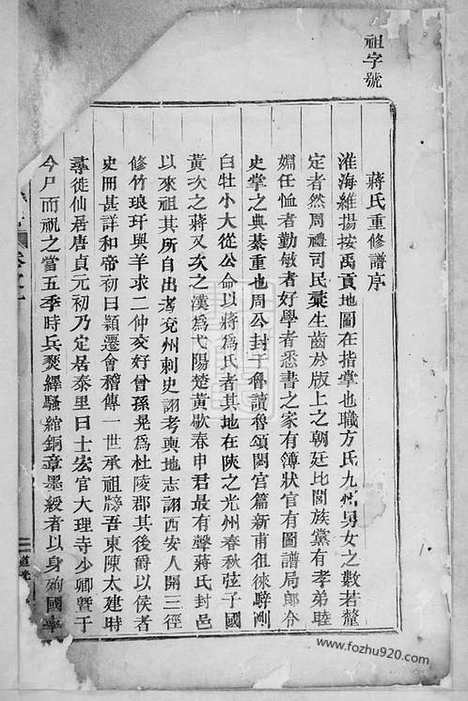 祖字號
蔣氏重修譜序
淮海維揚按禹貢地圖在指掌也職方氏九州男女之數若釐
定者然周禮司民稾生齒於版上之朝廷比閭族黨有孝弟睦
婣任恤者勤敏者好學者悉書之家有簿狀官有圖譜局郎令
史掌之典綦重也周公封于魯讀魯頌閟宮篇新甫徂徠騂剛
白牡小大從公命以蔣為氏者其地在陝之光州春秋弦子國
黃次之蔣又次之漢為弋陽楚黃歇春申君最有聲蔣氏封邑
以來祖其所自出考兗州刺史詡考輿地志詡西安人開三徑
修竹琅玕與羊求二仲交好曾孫晃為杜陵郡其後爵以侯者
史冊甚詳和帝初曰穎遷會稽傳一世承祖牓吾東陳太建時
尋徙仙居唐貞元初乃定居泰里曰士宏官大理寺少卿暨于
今尸而祝之當五季時兵燹繹騷綰銅章墨綬者以身殉國率
www.fozhu920.com